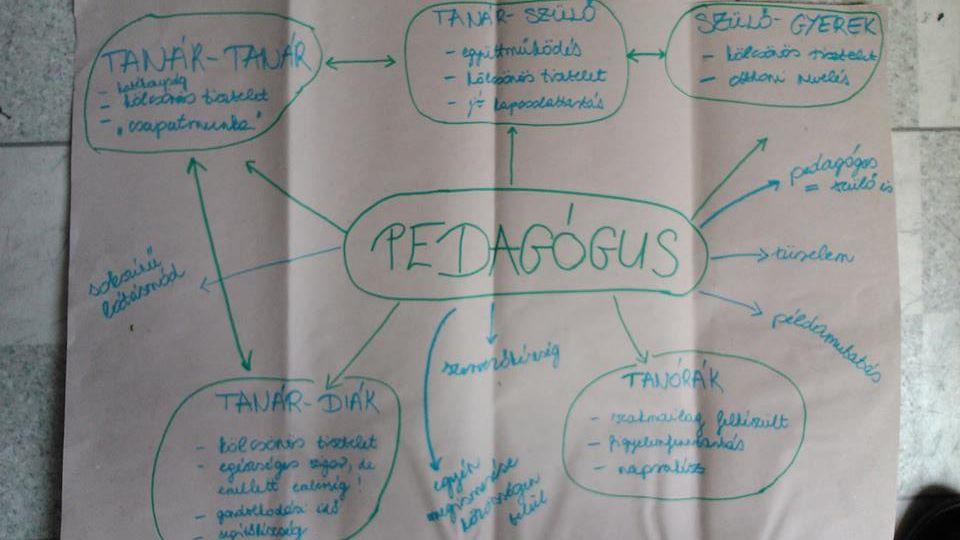 TANÁR-TANÁR
- hatékonyság
- kölcsönös tisztelet
- "csapatmunka"
TANÁR-SZÜLŐ
- együttműködés
- kölcsönös tisztelet
- jó kapcsolattartás
SZÜLŐ-GYEREK
- kölcsönös tisztelet
- otthoni nevelés
PEDAGÓGUS
pedagógus
= szülő is
türelem
példamutatás
sokszínű
látásmód
szervezőkészség
egyén
megismerése
közösségen
belül
TANÁR-DIÁK
- kölcsönös tisztelet
- egészséges szigor, de
emellett emberség!
- gondolkodási idő
- segítőkészség
TANÓRÁK
- szakmailag felkészült
- figyelemfenntartás
- naprakész